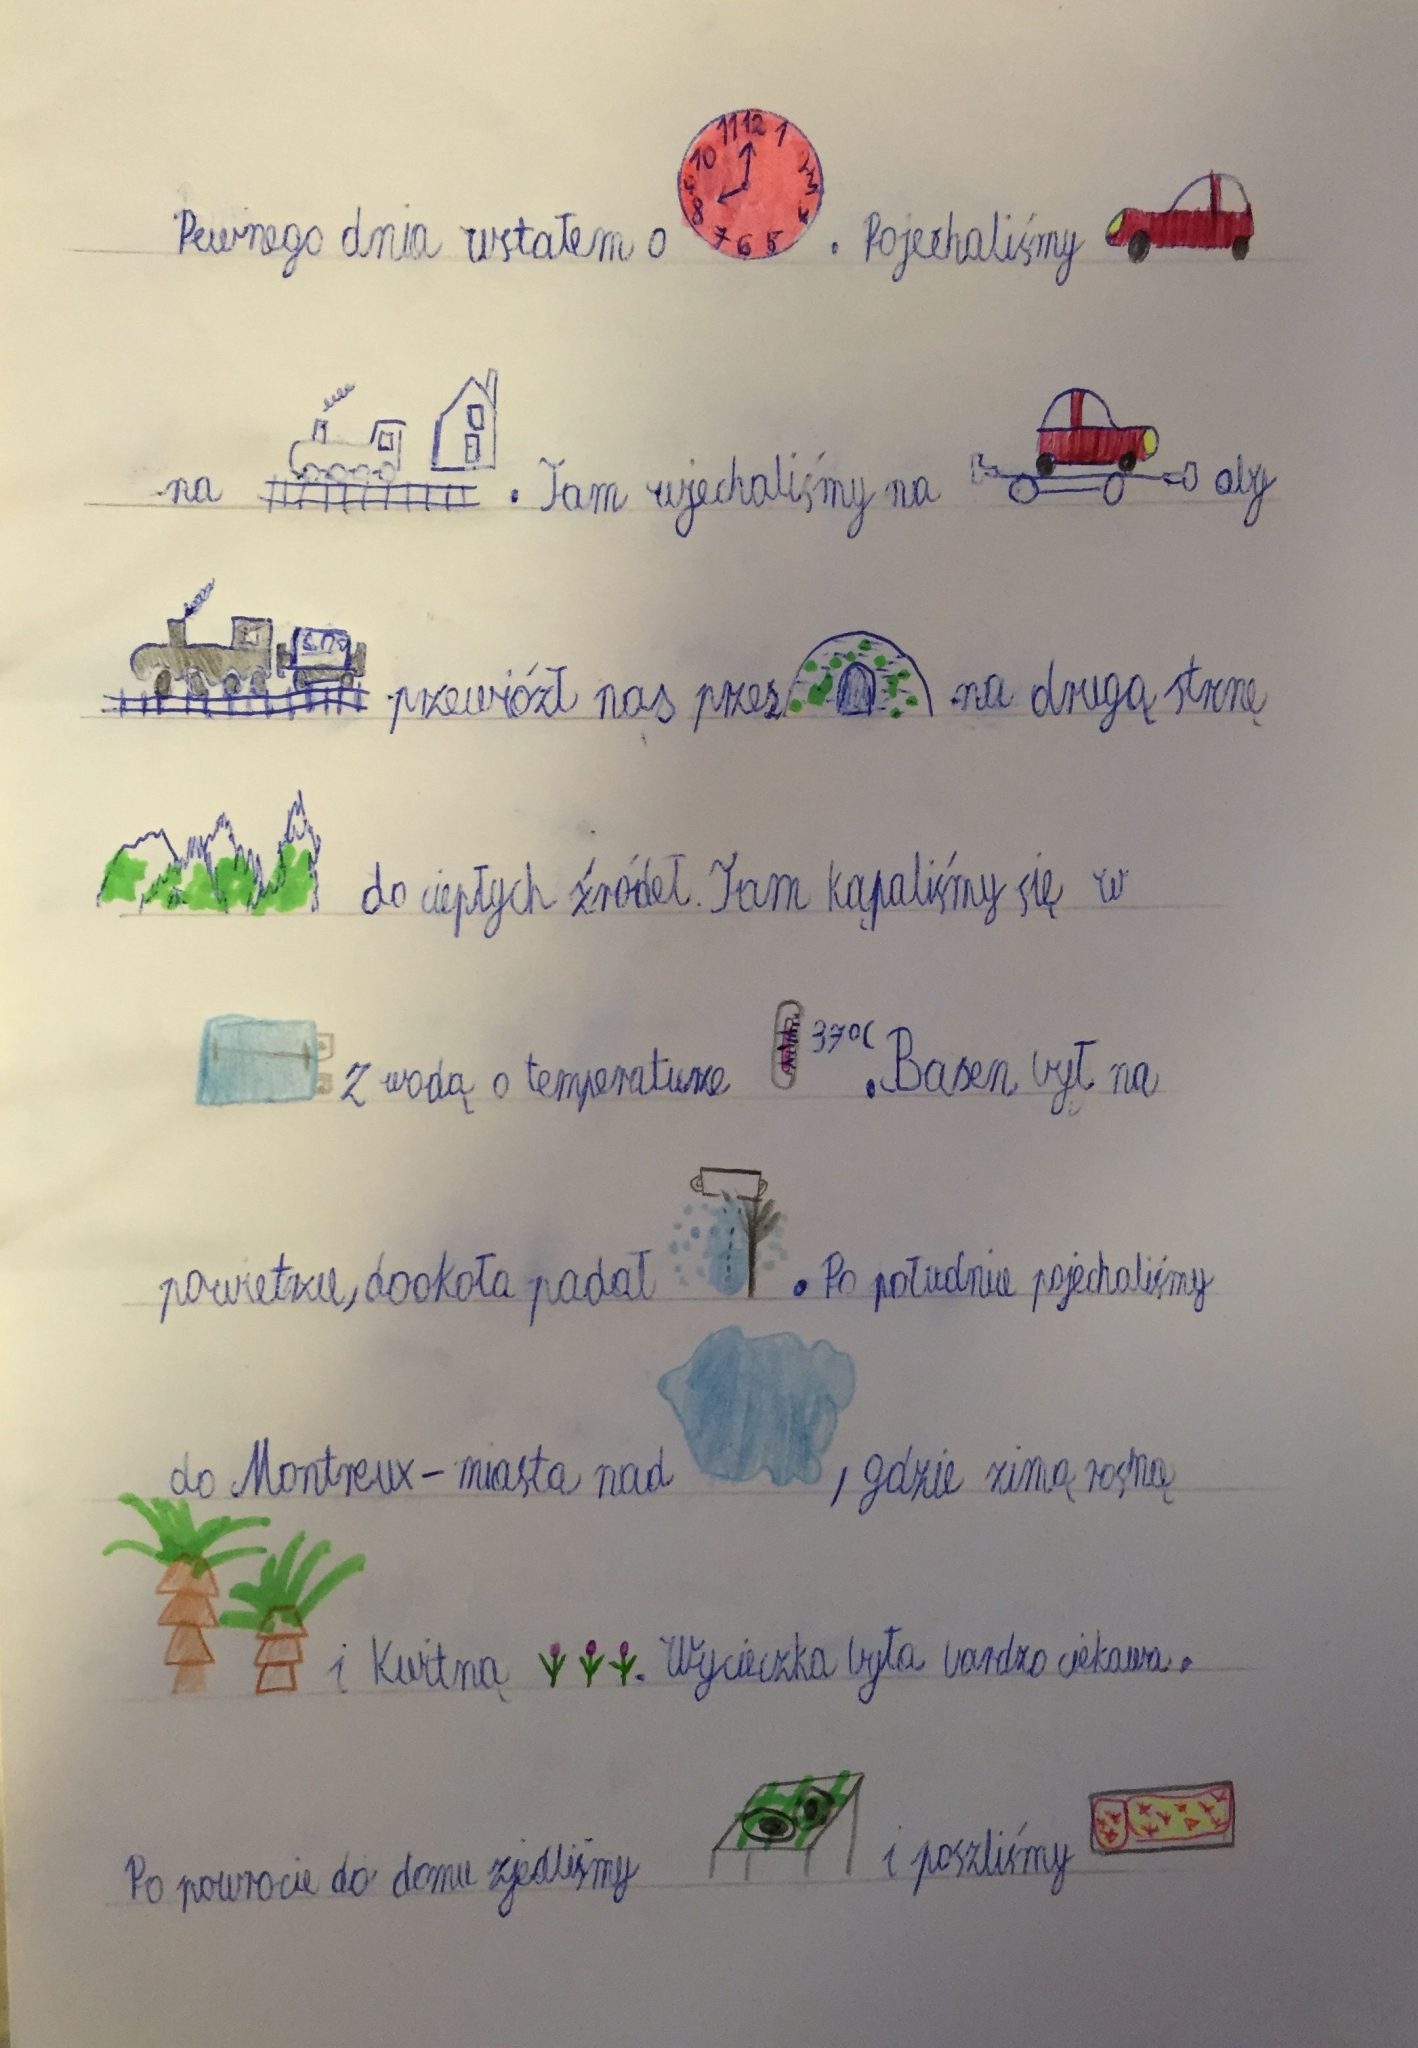 11 12 1
10 2
9 3
8 4
7 6 5
Pewnego dnia wstałem o . Pojechaliśmy
na . Tam wjechaliśmy na aby
przewiózł nas przez na drugą strnę
do ciepłych źródeł. Tam kąpaliśmy się w
z wodą o temperaturze 37°C . Basen był na
powietrzu, dookoła padał . Po południu pojechaliśmy
do Montreux - miasta nad , gdzie zimą rosną
i kwitną . Wycieczka była bardzo ciekawa.
Po powrocie do domu zjedliśmy i poszliśmy